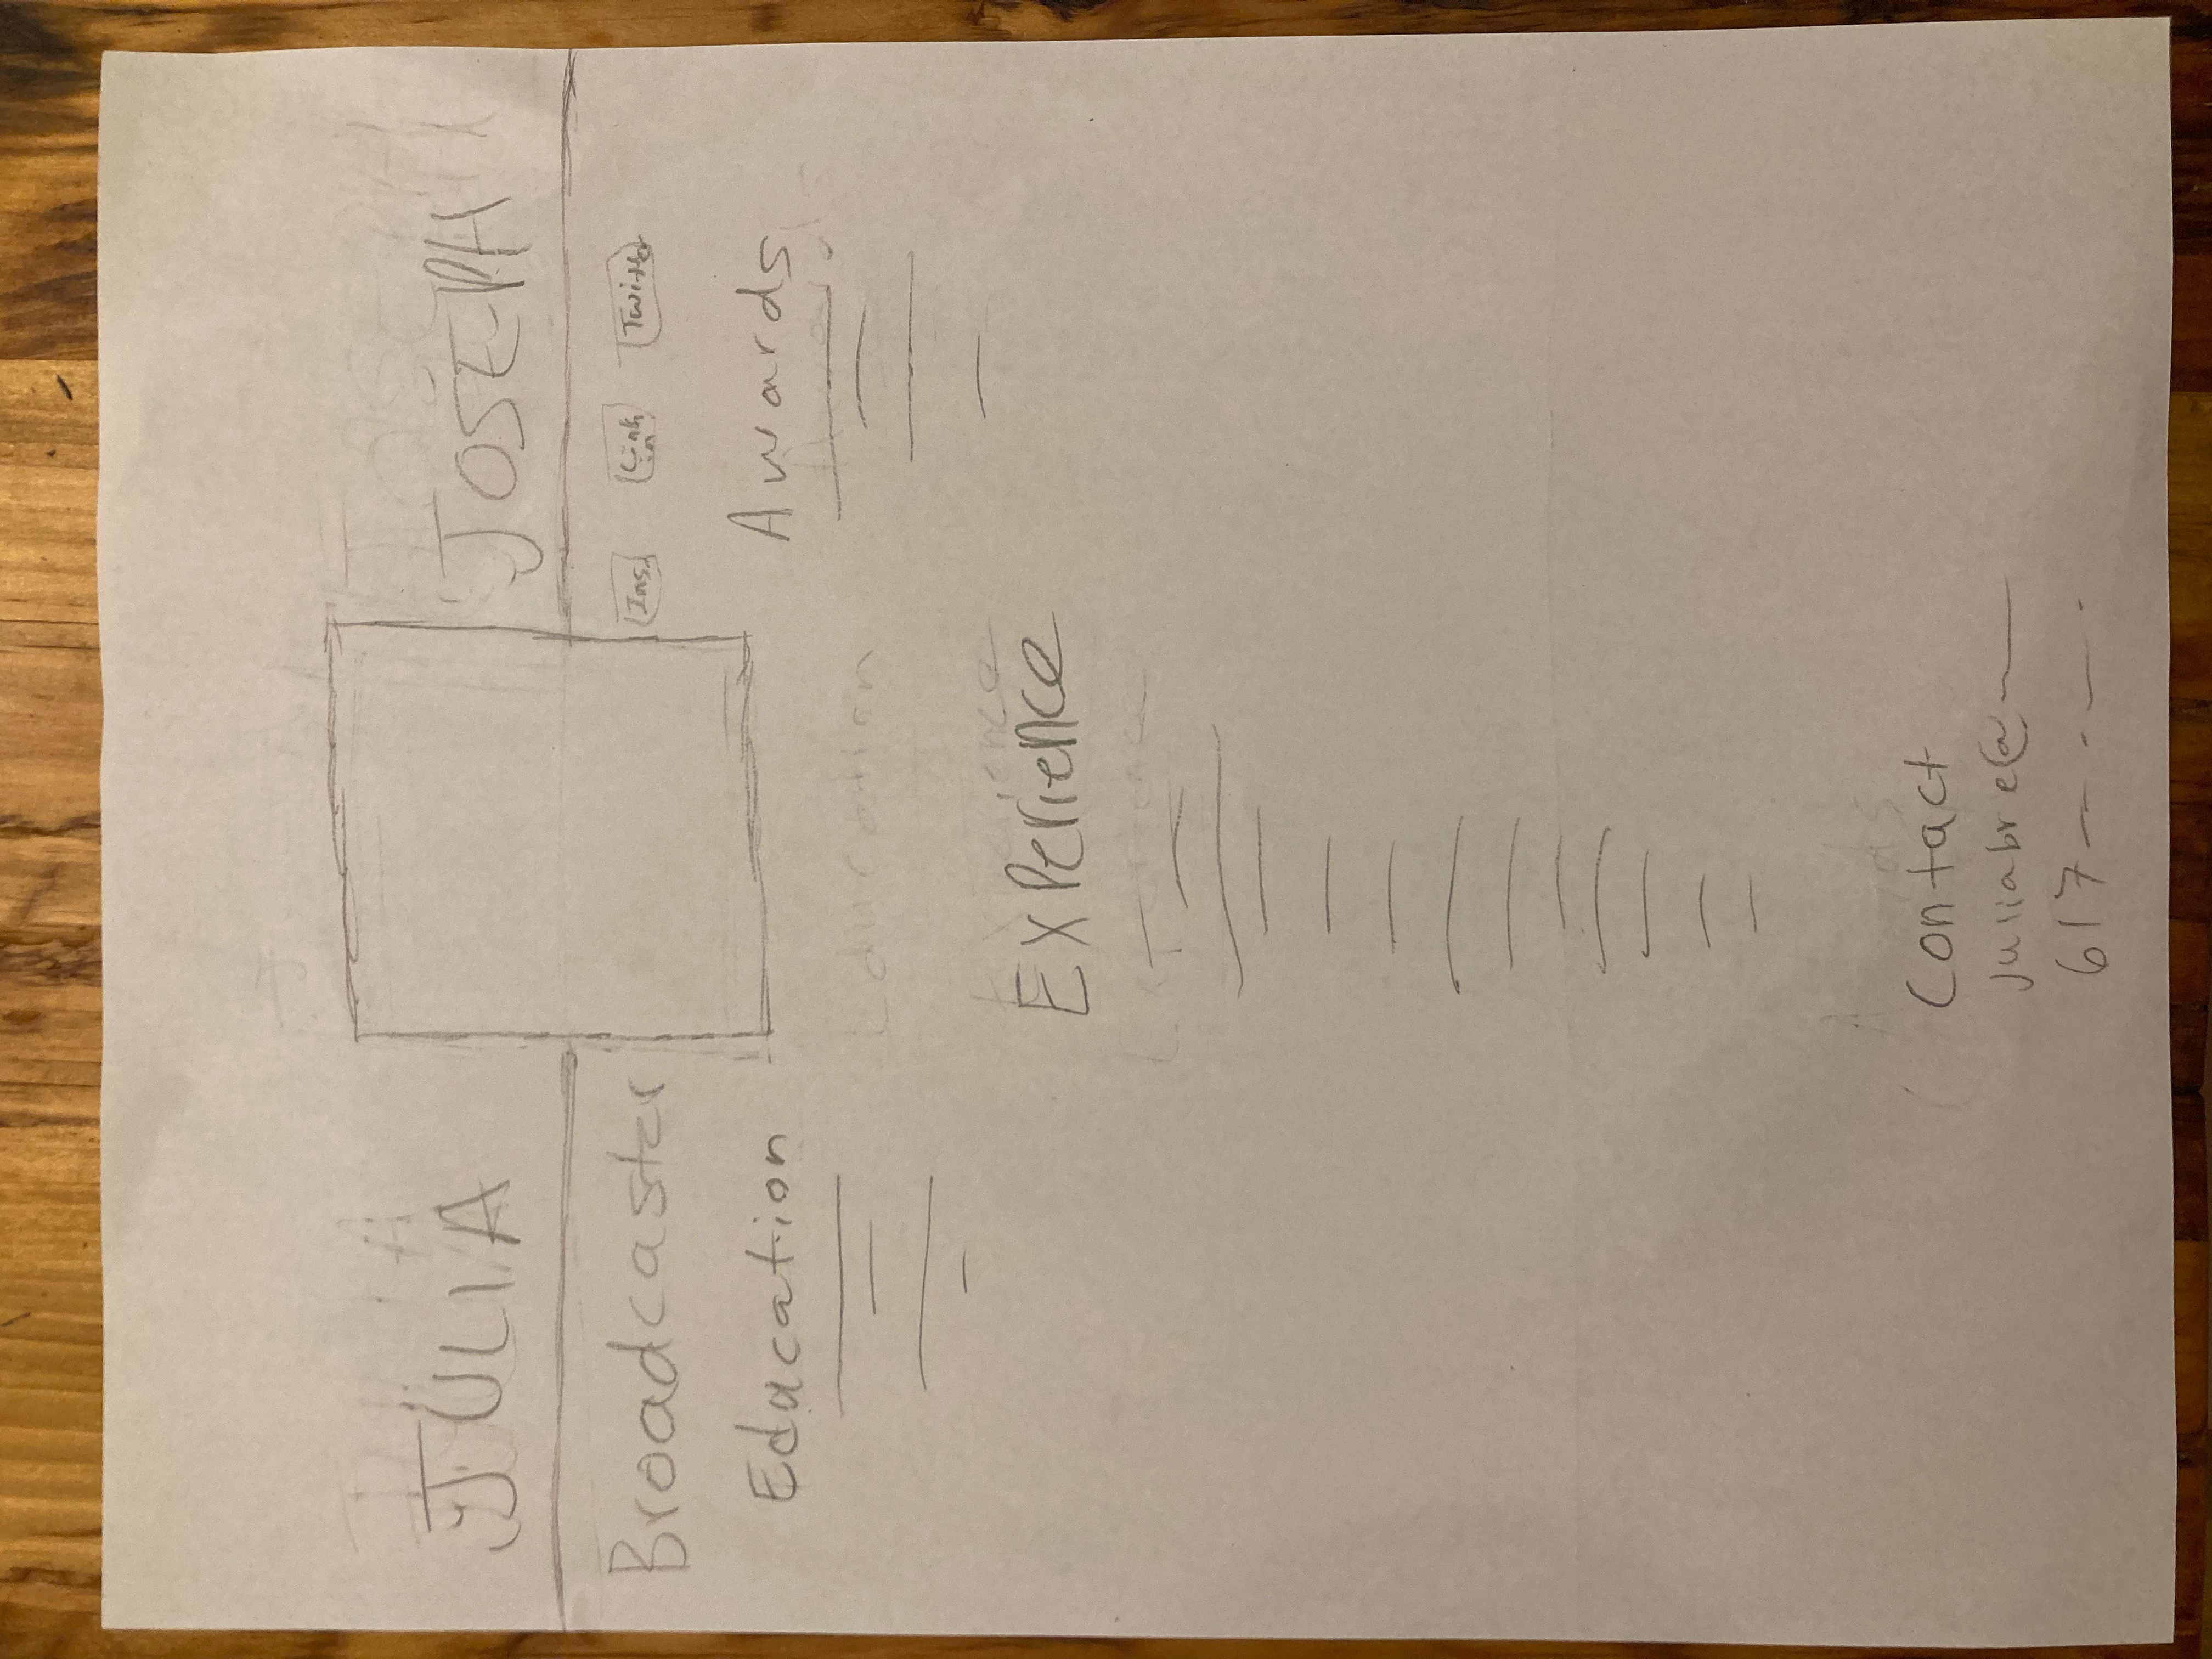 JULIA JOSEPH
Broadcaster
Ins. Link in Twitter
Education Awards
Experience
Contact
Juliabre@
617